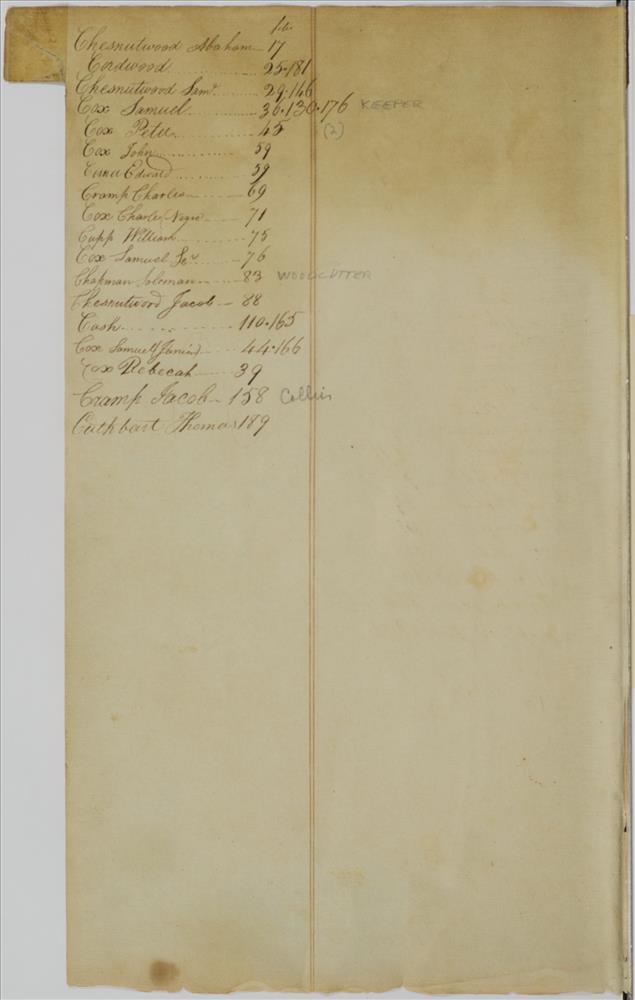 fo.
Chesnutwood Abaham 17
Cordwood 25.181
Chesnutwood Sam.l 29.146
Cox Samuel 30.130.176 KEEPER
Cox Peter 45 (2)
Cox John 59
Edward 59
Cramp Charles 69
Cox Charles Negro 71
Cupp William 75
Cox Samuel Se.r 76
Chapman Soloman 83 WOODCUTTER
Chesnutwood Jacob 88
Cash 110.165
Cox Samuel Junior 44.166
Cox Rebecah 39
Cramp Jacob 158 Collier
Cuthbart Thomas 189